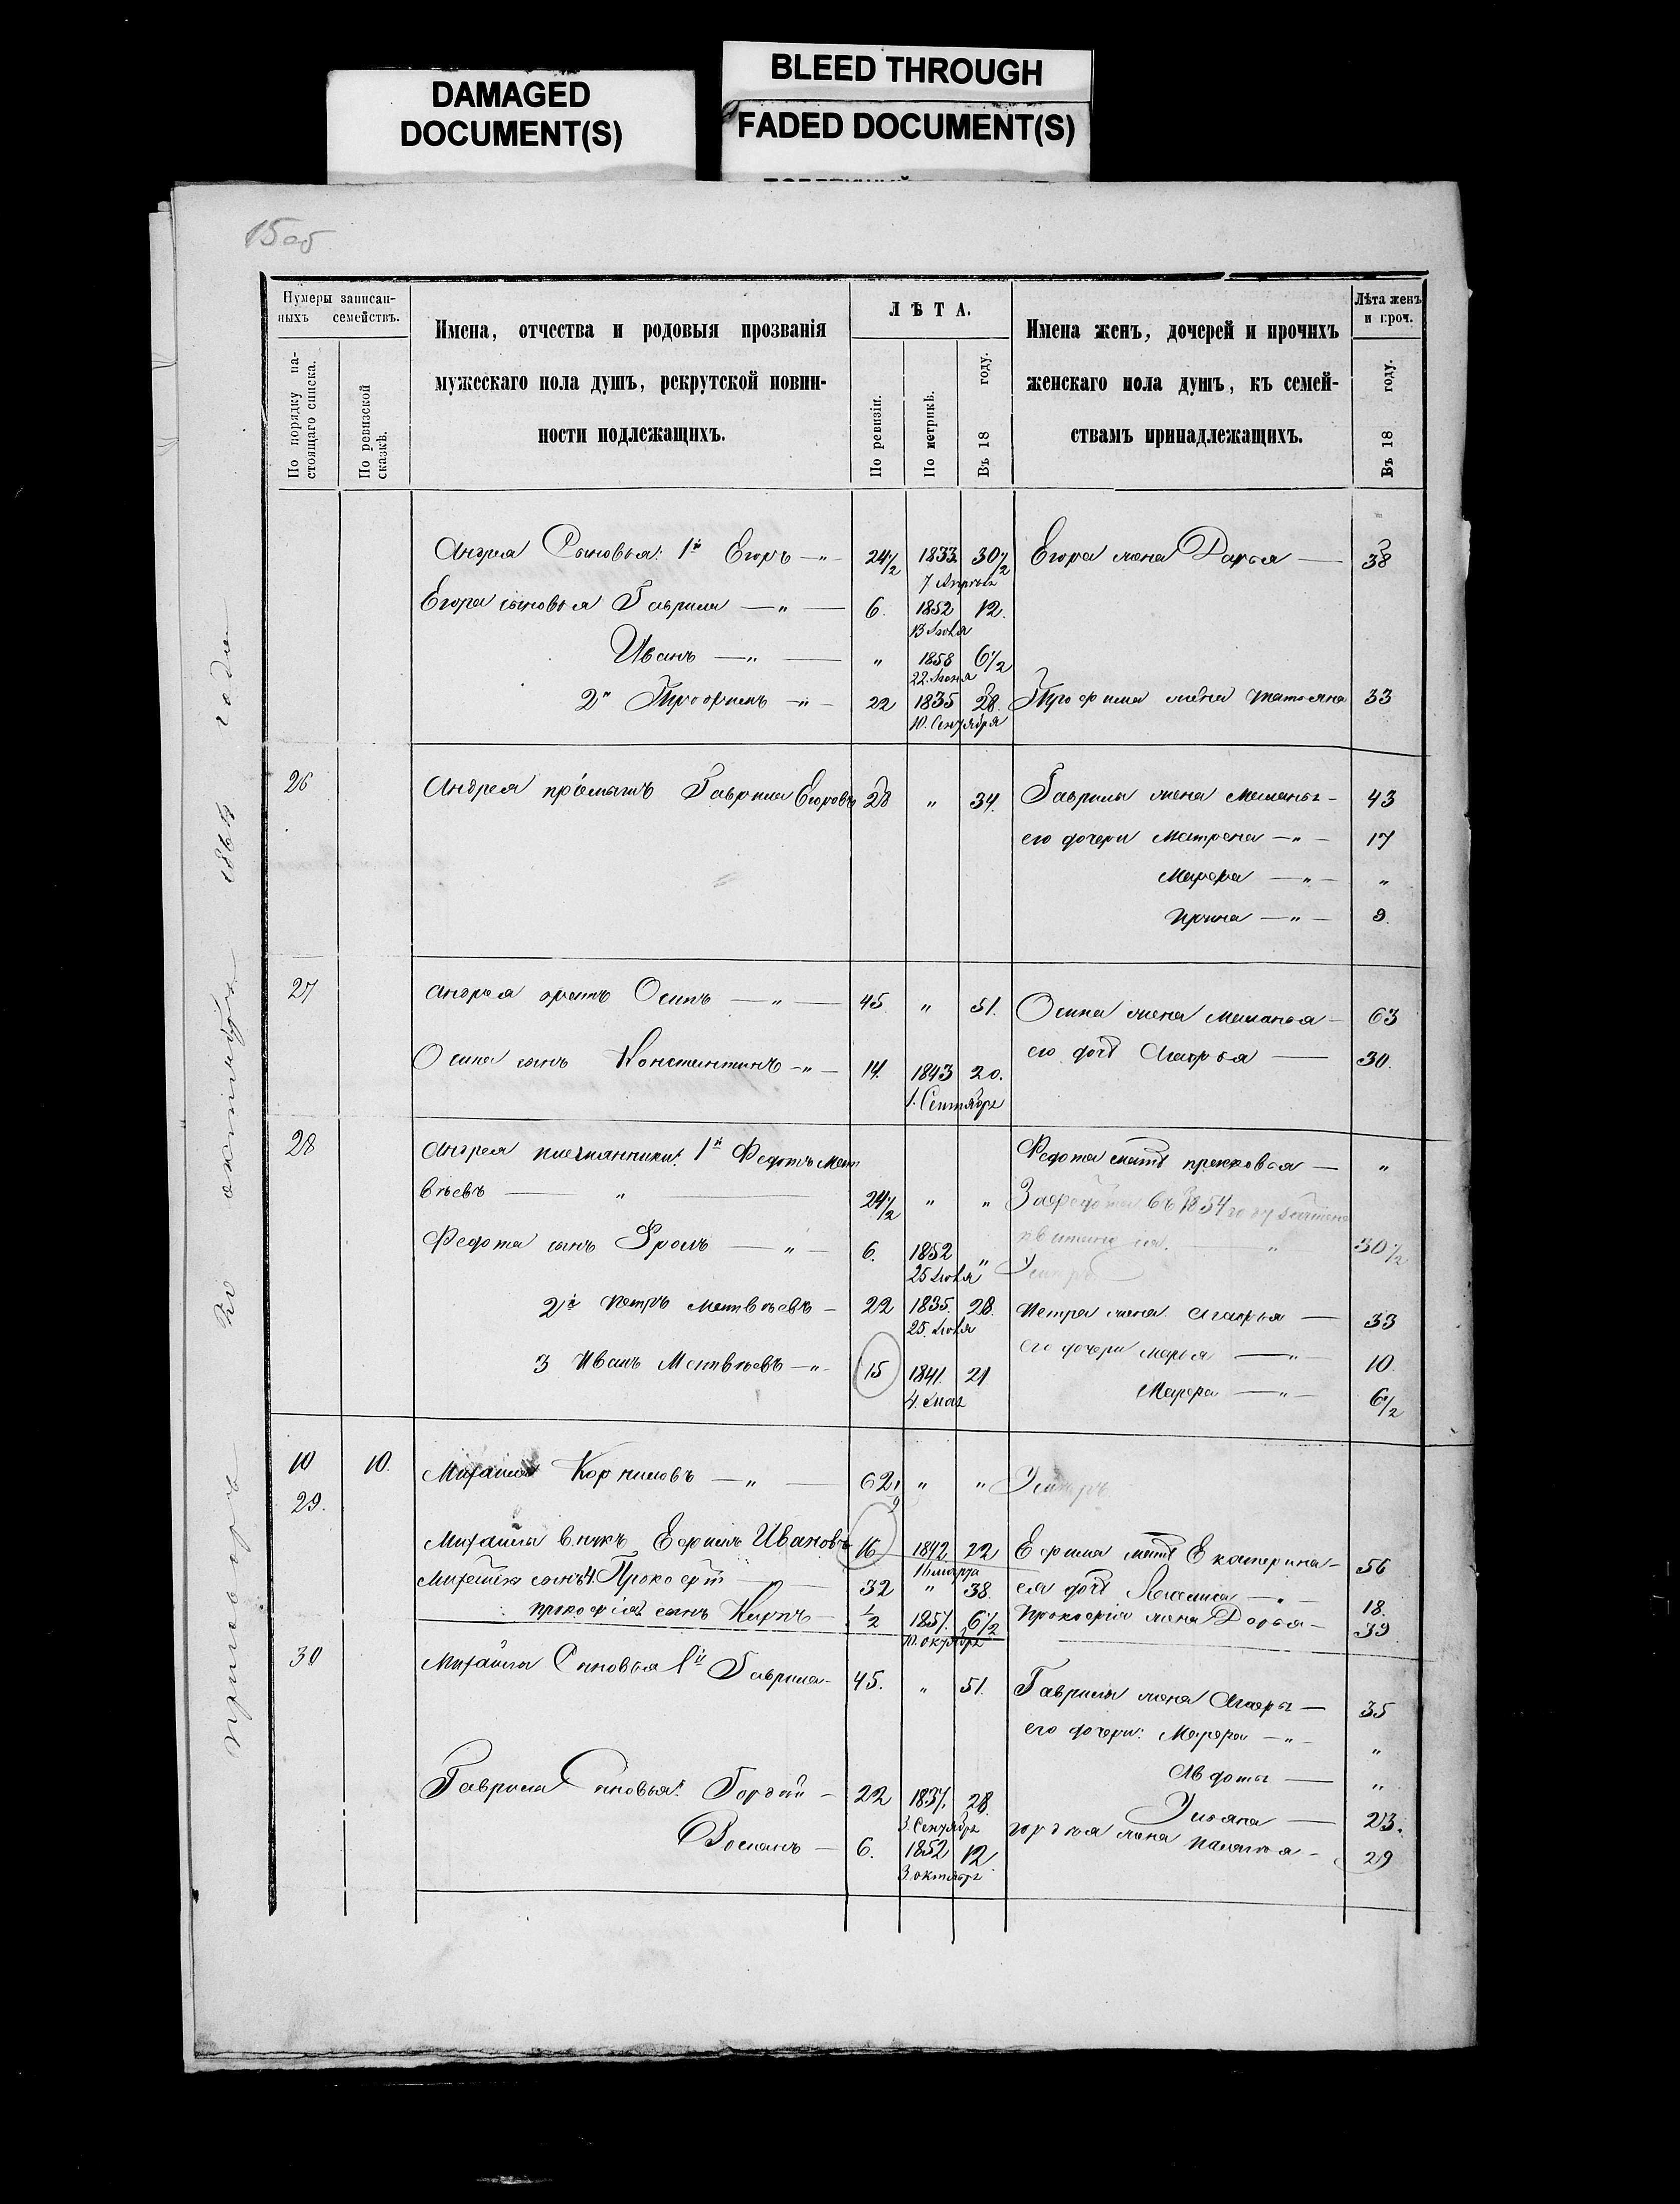 DAMAGED
DOCUMENT(S)
BLEED THROUGH
FADED DOCUMENT(S)
15об
Нумеры записан-
ныхъ семействъ.
По порядку на-
стоящаго списка.
По ревизской
сказкѣ.
Имена, отчества и родовыя прозванія
мужескаго пола душъ, рекрутской повин-
ности подлежащихъ.
ЛѢТА.
По ревизіи.
По метрикѣ.
Въ 18 году.
Имена женъ, дочерей и прочихъ
женскаго пола душъ, къ семей-
ствамъ принадлежащихъ.
Лѣта женъ
и проч.
Въ 18 году.
Андрея Сыновья: 1й Егоръ — 24½ 1833 30½ Егора жена Дарья — 38
7 Апрѣля
Егора сыновья Гаврила — 6. 1852 12.
13 Іюля
Иванъ — " — " 1858 6½
22. Іюня
2й Трофимъ — 22 1835 28. Трофима жена Татьяна 33
10. Сентября
26 Андрея пріемышъ Гаврила Егоровъ 28 " 34. Гаврилы жена Меланья - 43
его дочери Матрена — " — 17
Марфа — " — "
Ирина — " — 9.
27 Андрея братъ Осипъ — " — 45 " 51. Осипа жена Меланья — 63
его дочь Агафья — 30.
Осипа сынъ Константинъ — " — 14. 1843 20.
1. Сентября
28 Андрея племянники: 1й Федотъ Мат
вѣевъ — " — 24½ " "
Федота мать Прасковья — "
въ 1854 году
30½
Федота сынъ Фролъ — " — 6. 1852 "
25 Іюля
2й Петръ Матвѣевъ — 22 1835. 28. Петра жена Агафья — 33
25. Іюля
его дочери Марья — " — 10.
3 Иванъ Матвѣевъ — " — 15 1841. 21
4. Мая
Марфа — " — 6½
10 10. Михайла Корниловъ — " — 62 " " Умеръ
29.
Михайлы внукъ Ефимъ Ивановъ 16 1842 22 Ефима мать Екатерина — 56
16 марта
Михайлы сынъ 4. Прокофій — 32 " 38. ея дочь — 18.
Прокофія сынъ Карпъ — ½ 1857. 6½ Прокофія жена Дарья — 39
10. октября
30 Михайлы Сыновья 1й Гаврила — 45. " 51. Гаврилы жена — 35
его дочери: Марфа — " — "
Авдотья — "
Гаврилы Сыновья: Гордѣй — 22 1837. 28.
3. Сентября
Ульяна — 23.
Гордѣя жена Пелагея — 29
6. 1852 12
3. октября